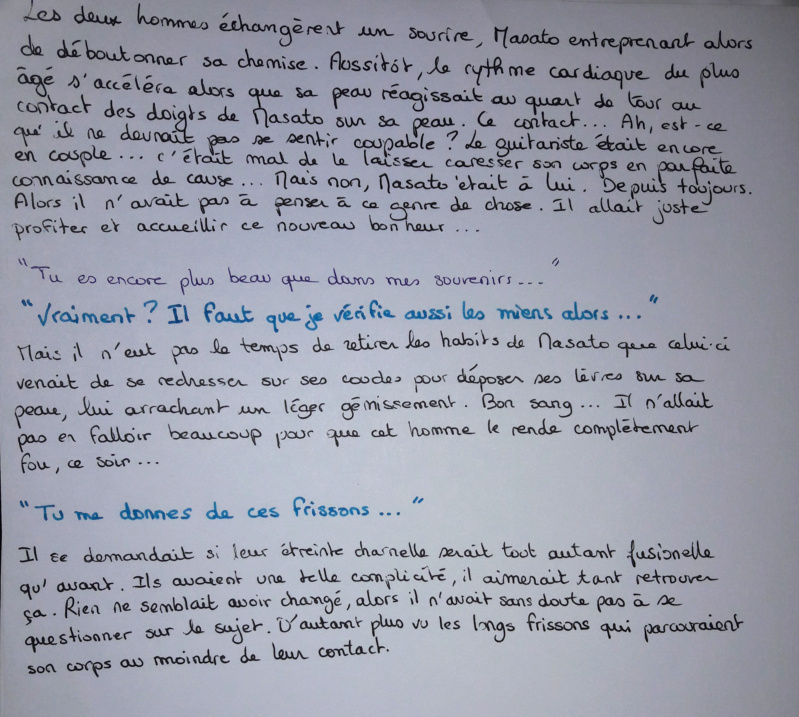 Les deux hommes échangèrent un sourire, Masato entreprenant alors
de déboutonner sa chemise. Aussitôt, le rythme cardiaque du plus
âgé s'accéléra alors que sa peau réagissait au quart de tour au
contact des doigts de Masato sur sa peau. Ce contact... Ah, est-ce
qu'il ne devrait pas se sentir coupable ? Le guitariste était encore
en couple... c'était mal de le laisser caresser son corps en parfaite
connaissance de cause... Mais non, Masato était à lui. Depuis toujours.
Alors il n'avait pas à penser à ce genre de chose. Il allait juste
profiter et accueillir ce nouveau bonheur...
"Tu es encore plus beau que dans mes souvenirs..."
"Vraiment ? Il faut que je vérifie aussi les miens alors..."
Mais il n'eut pas le temps de retirer les habits de Masato que celui-ci
venait de se redresser sur ses coudes pour déposer ses lèvres sur sa
peau, lui arrachant un léger gémissement. Bon sang... Il n'allait
pas en falloir beaucoup pour que cet homme le rende complètement
fou, ce soir...
"Tu me donnes de ces frissons..."
Il se demandait si leur étreinte charnelle serait tout autant fusionelle
qu'avant. Ils avaient une telle complicité, il aimerait tant retrouver
ça. Rien ne semblait avoir changé, alors il n'avait sans doute pas à se
questionner sur le sujet. D'autant plus vu les longs frissons qui parcouraient
son corps au moindre de leur contact.